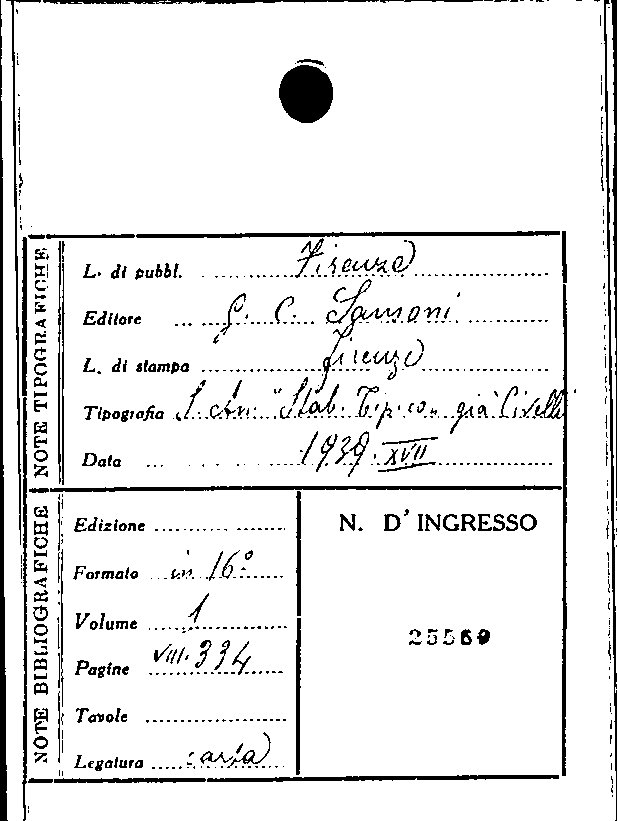 NOTE TIPOGRAFICHE
L. di pubbl. Firenze
Editore G. C. Sansoni
L. di stampa Firenze
Tipografia S. An. "Stab. Tip. co" già Civelli
Data 1939. XVII
NOTE BIBLIOGRAFICHE
Edizione
Formato in 16º
Volume 1
Pagine VIII. 334
Tavole
Legatura carta
N. D' INGRESSO
25569